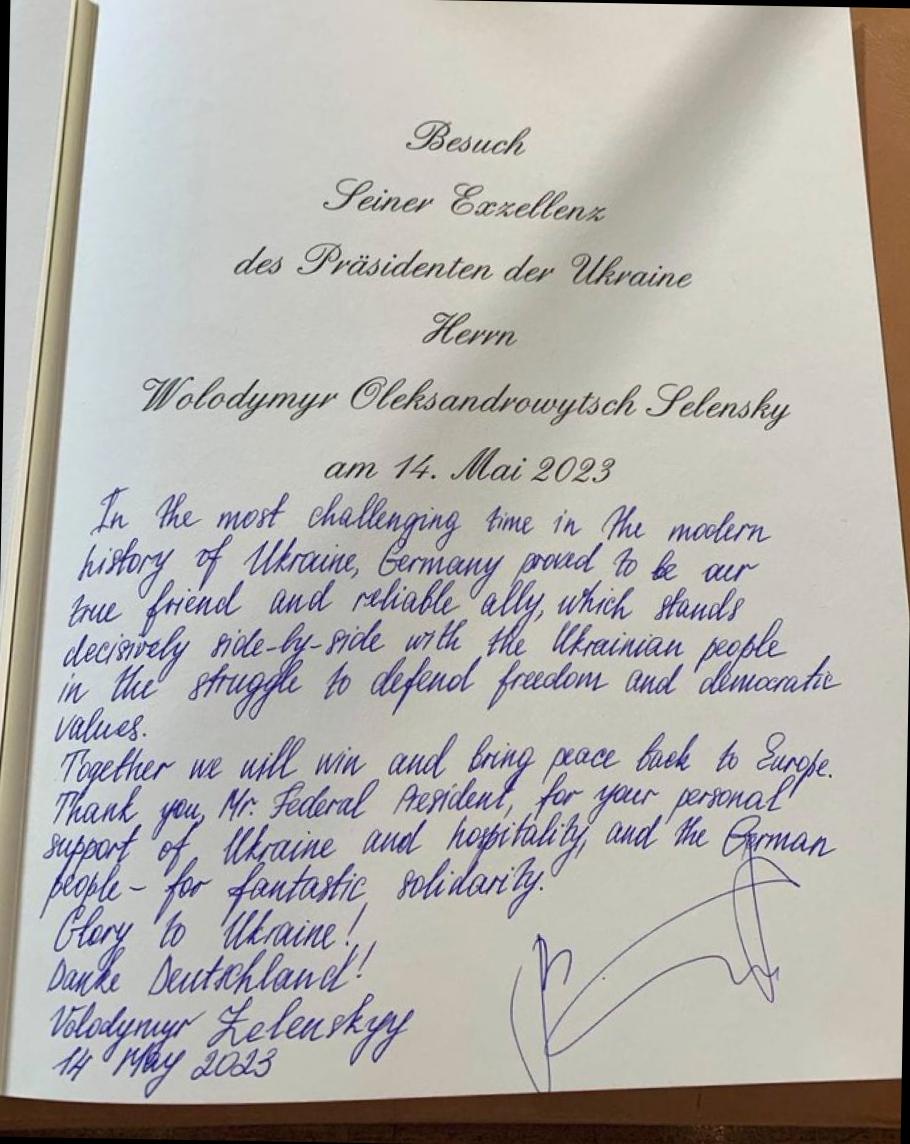 Besuch
Seiner Exzellenz
des Präsidenten der Ukraine
Herrn
Wolodymyr Oleksandrowytsch Selensky
am 14. Mai 2023
In the most challenging time in the modern
history of Ukraine, Germany proved to be our
true friend and reliable ally, which stands
decisively side-by-side with the Ukrainian people
in the struggle to defend freedom and democratic
values.
Together we will win and bring peace back to Europe.
Thank you, Mr. Federal President, for your personal
support of Ukraine and hospitality, and the German
people – for fantastic solidarity.
Glory to Ukraine!
Danke Deutschland!
Volodymyr Zelenskyy
14 May 2023